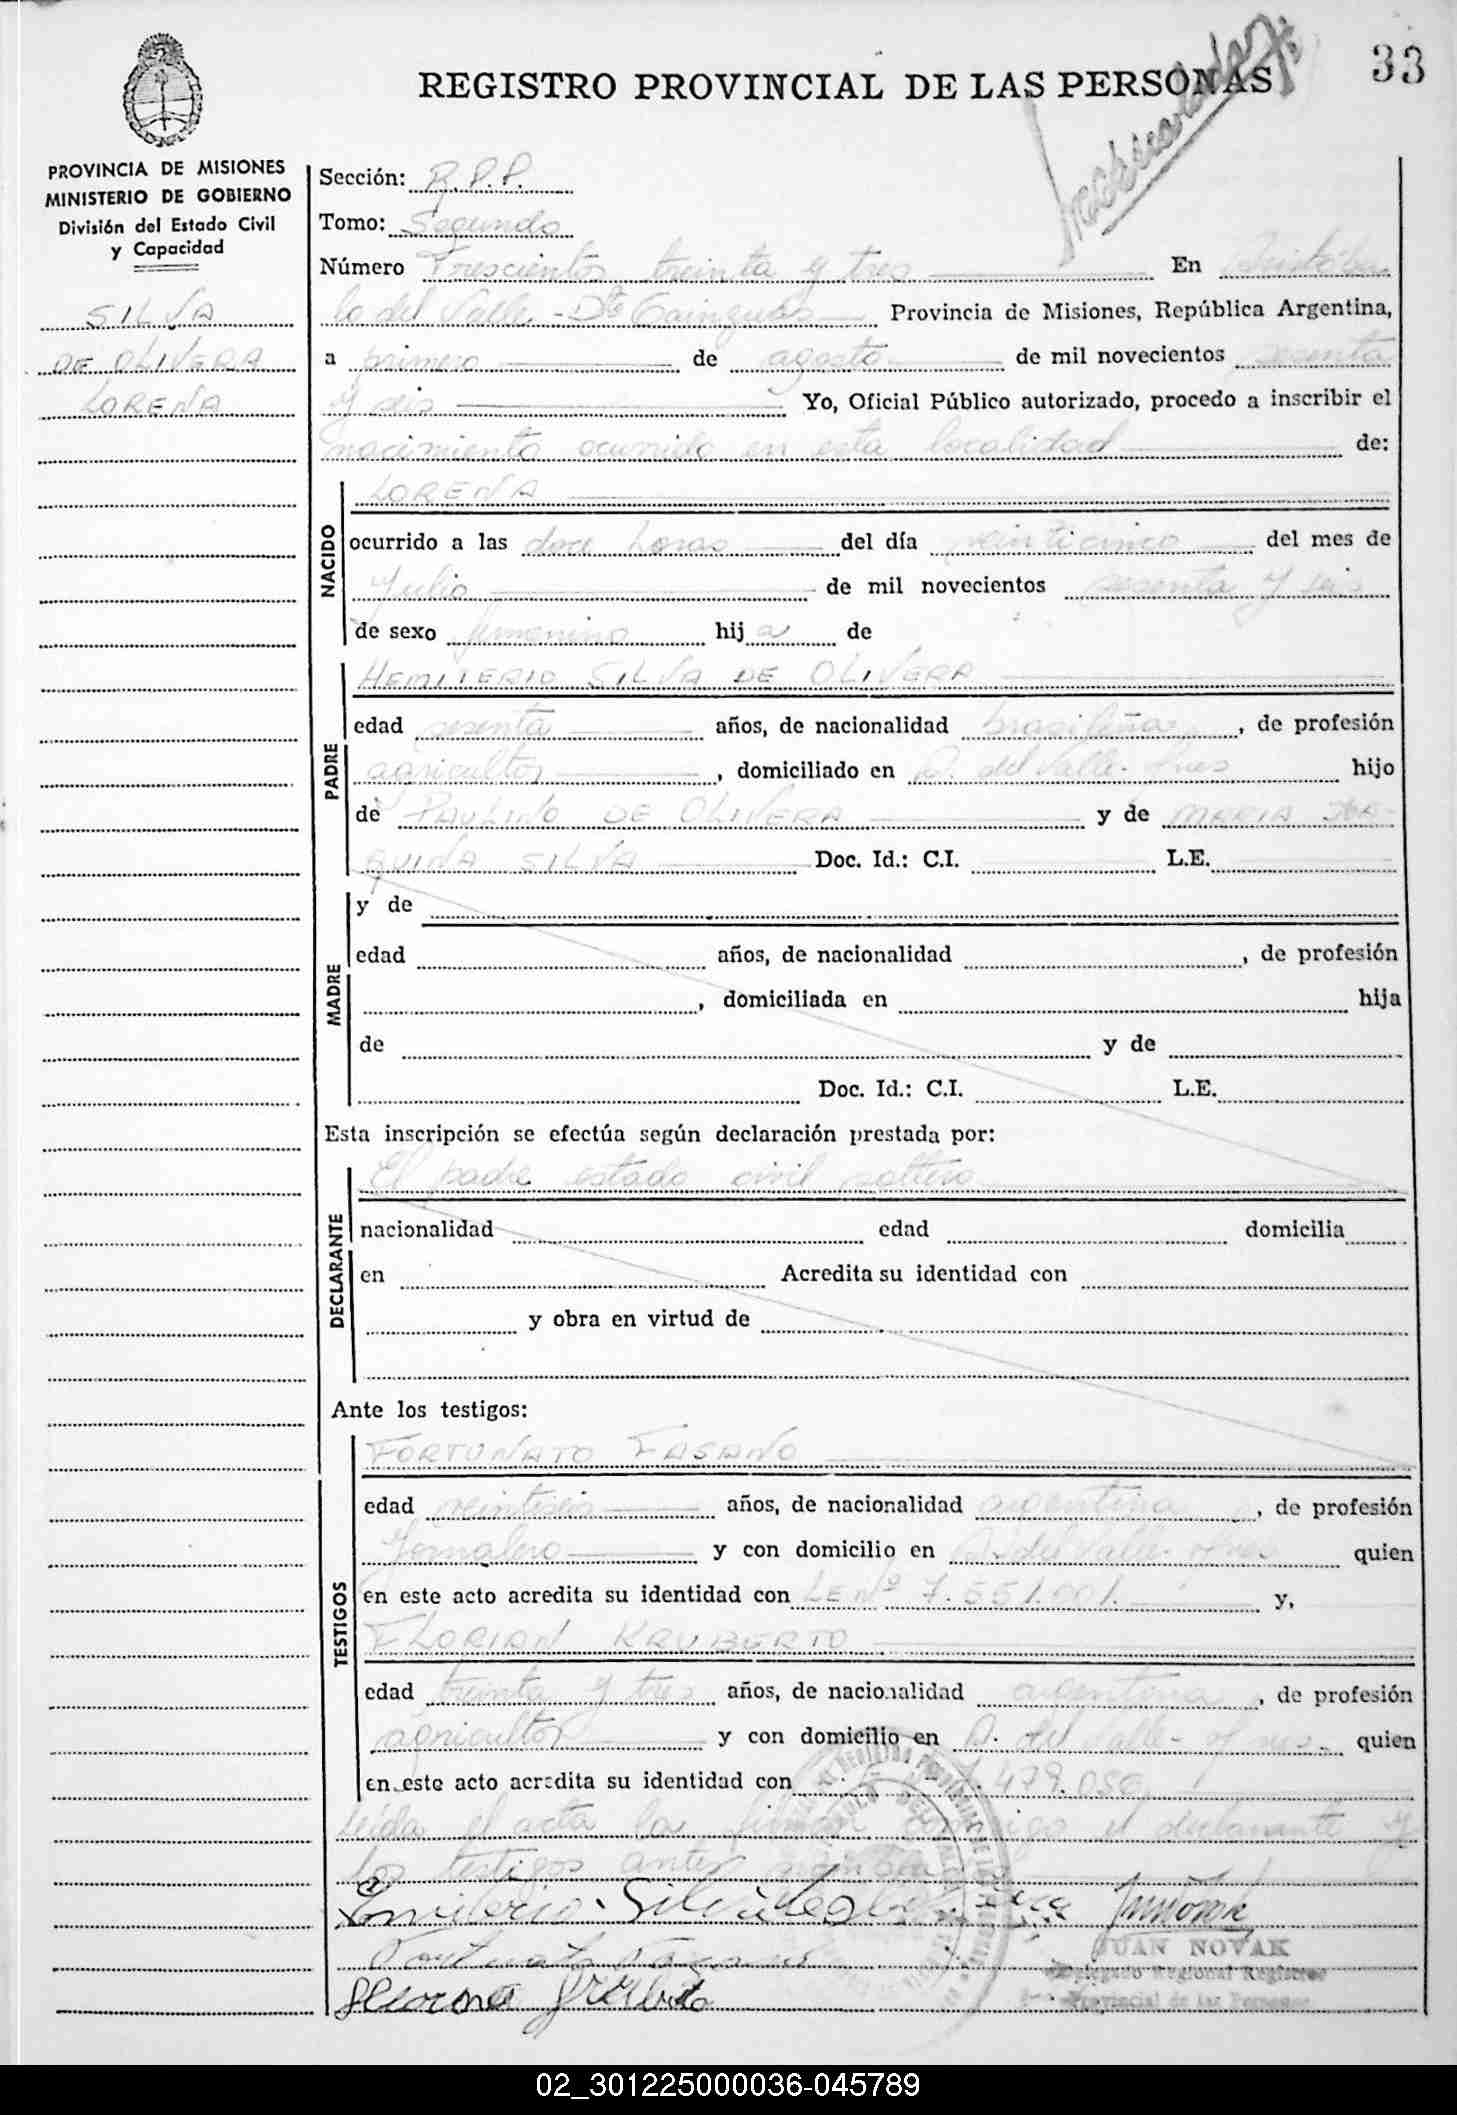 33
REGISTRO PROVINCIAL DE LAS PERSONAS
PROVINCIA DE MISIONES
MINISTERIO DE GOBIERNO
División del Estado Civil
y Capacidad
SILVA
DE OLIVERA
LORENA
Sección: R.P.P.
Tomo: Segundo
Número Trescientos treinta y tres En Aristóbu
lo del Valle - Dto Cainguás Provincia de Misiones, República Argentina,
a primero de agosto de mil novecientos sesenta
y seis Yo, Oficial Público autorizado, procedo a inscribir el
nacimiento ocurrido en esta localidad de:
NACIDO
LORENA
ocurrido a las doce horas del día veinticinco del mes de
Julio de mil novecientos sesenta y seis
de sexo femenino hija de
PADRE
HEMITERIO SILVA DE OLIVERA
edad sesenta años, de nacionalidad brasileña, de profesión
agricultor, domiciliado en A. del Valle - Mnes hijo
de PAULINO DE OLIVERA y de MARIA JOA-
QUINA SILVA Doc. Id.: C.I. L.E.
MADRE
y de
edad años, de nacionalidad , de profesión
, domiciliada en hija
de y de
Doc. Id.: C.I. L.E.
Esta inscripción se efectúa según declaración prestada por:
DECLARANTE
El padre estado civil soltero
nacionalidad edad domicilia
en Acredita su identidad con
y obra en virtud de
Ante los testigos:
TESTIGOS
FORTUNATO FASANO
edad veintiseis años, de nacionalidad argentina, de profesión
Jornalero y con domicilio en A. del Valle - Mnes quien
en este acto acredita su identidad con LE Nº 7.551.001. y,
FLORIAN KRUBERTO
edad treinta y tres años, de nacionalidad argentina, de profesión
agricultor y con domicilio en A. del Valle - Mnes quien
en este acto acredita su identidad con 7.479.050
Leída el acta la firman conmigo el declarante y
los testigos antes nombrados
Emiterio Silva de
JUAN NOVAK
Delegado Regional Registro
Provincial de las Personas
02_301225000036-045789